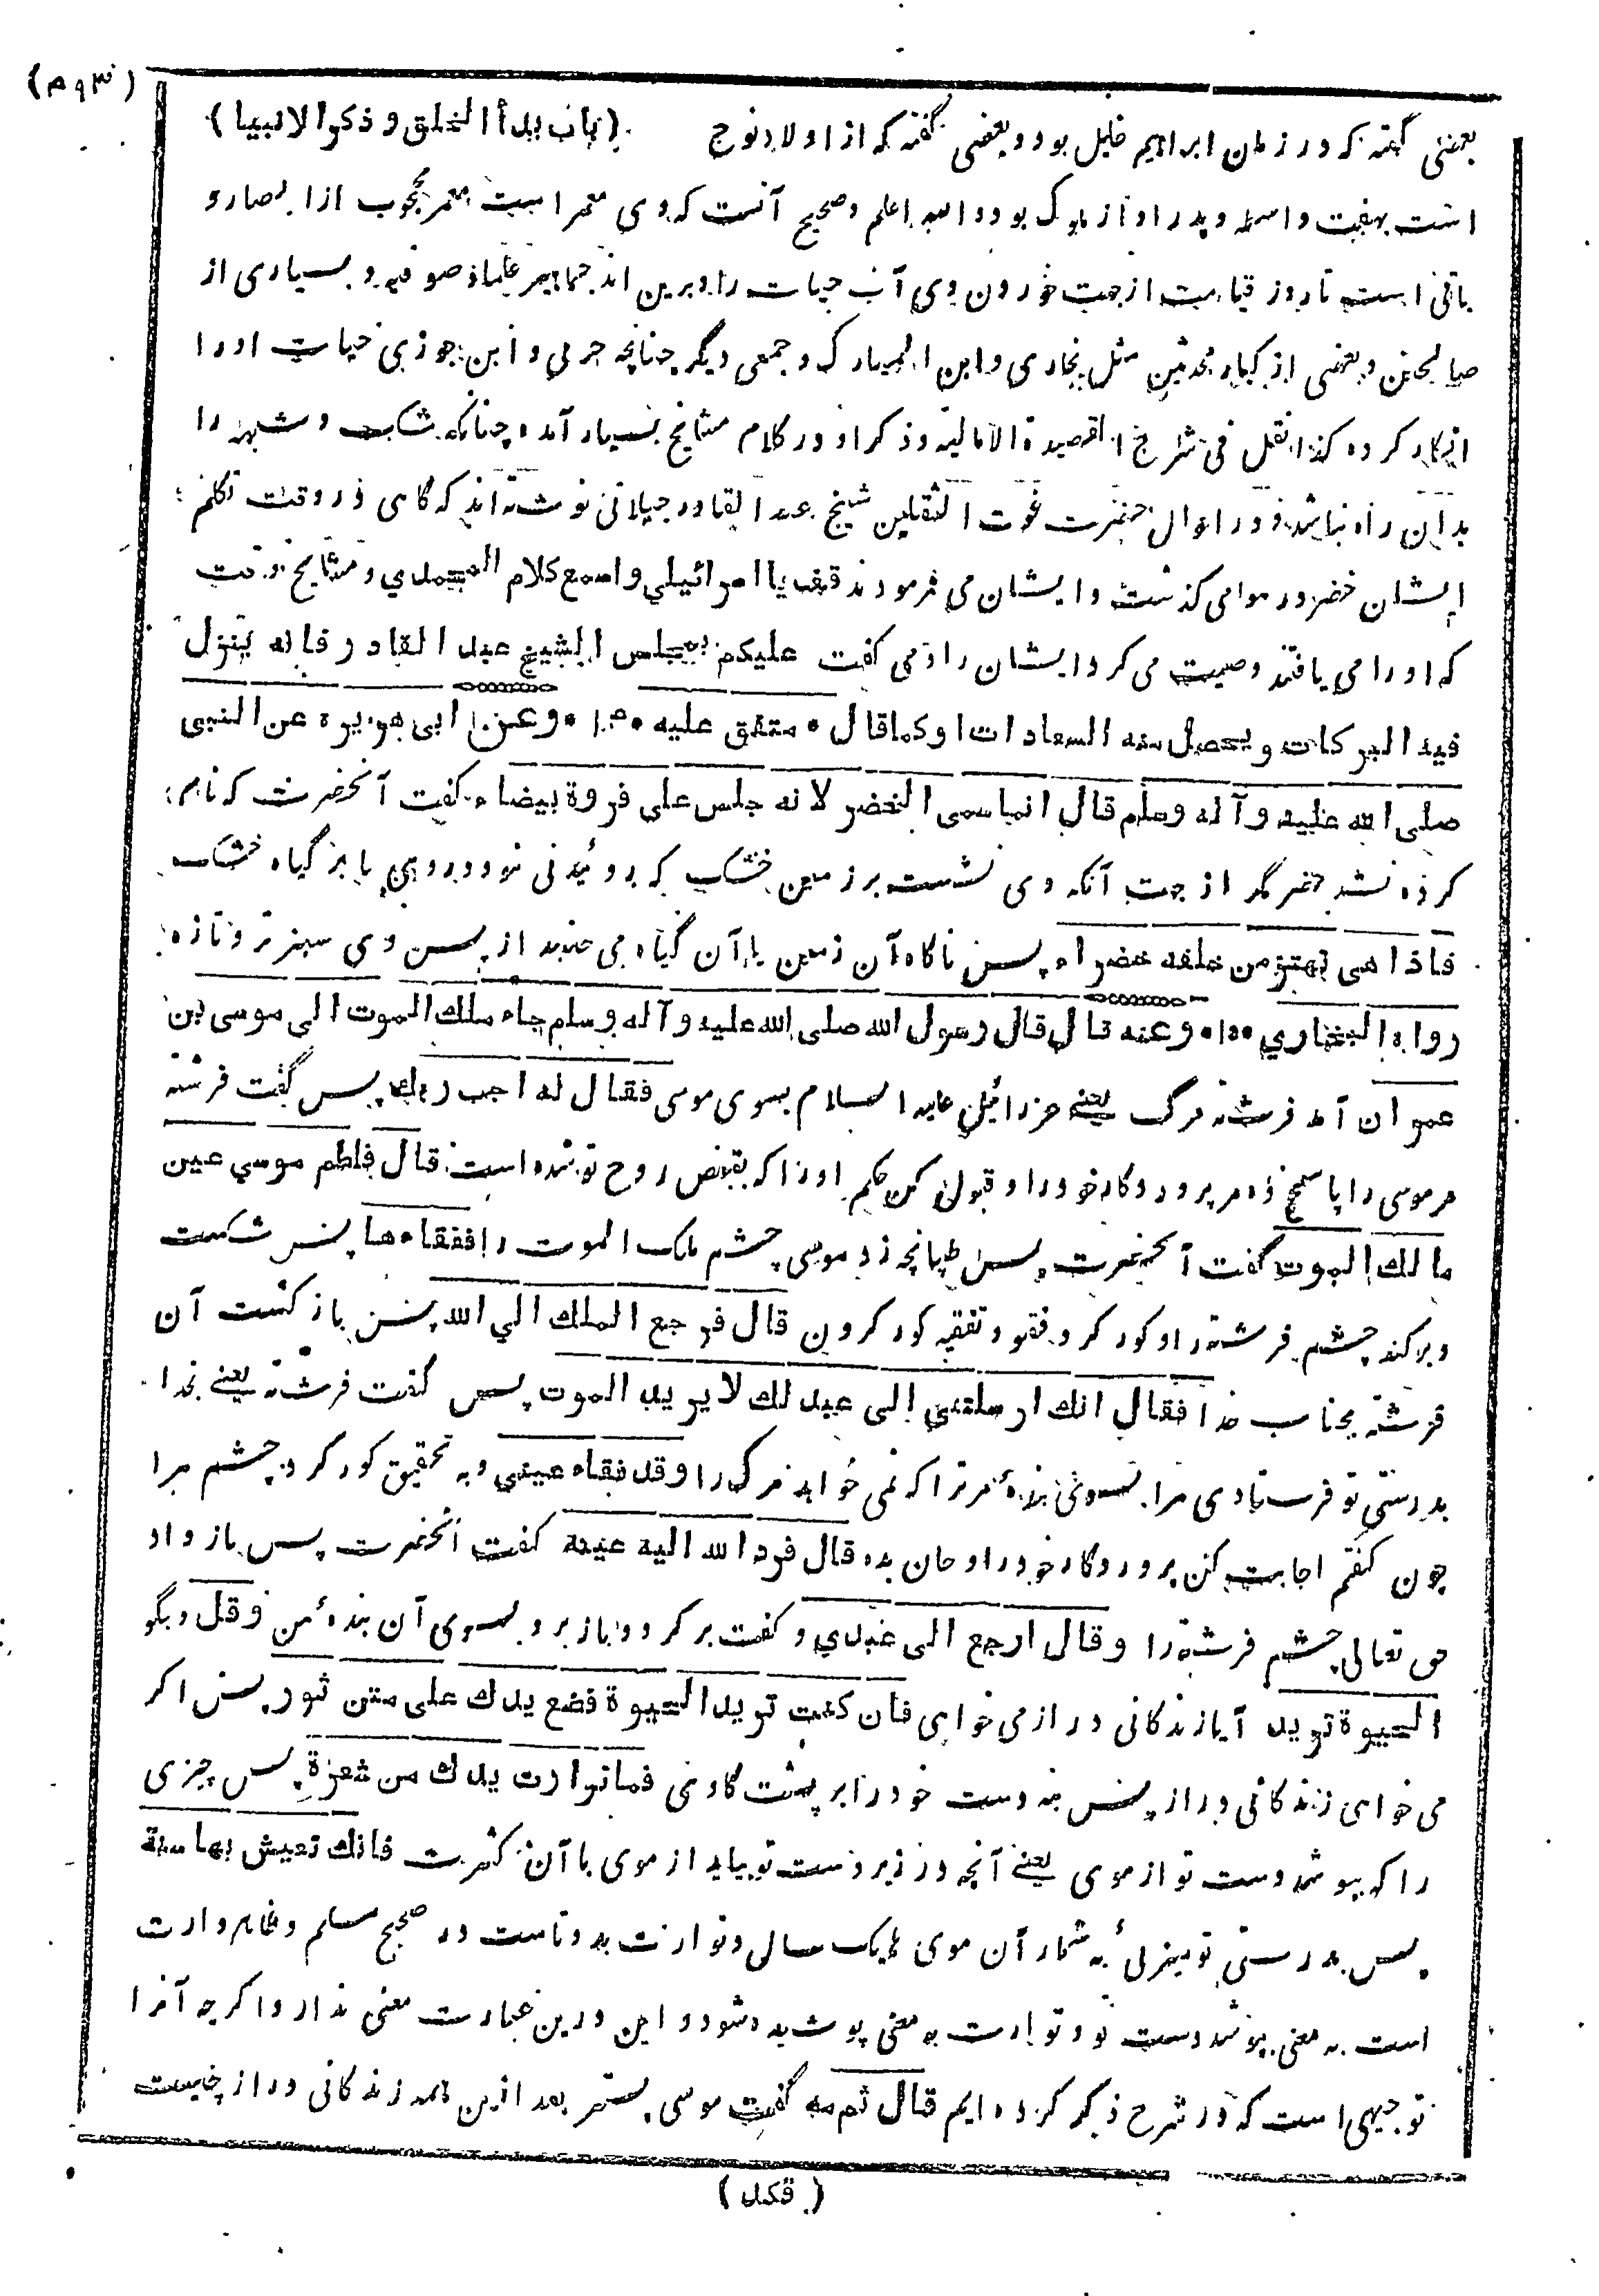 (۴۹۳)
(باب بدأ الخلق و ذکر الانبیا)
بعضی گفته که در زمان ابراهیم خلیل بود و بعضی گفته که از اولاد نوح
است بهفت واسطه و پدر او از ملوک بود و الله اعلم و صحیح آنست که وی معمر است معمر محجوب از ابصار و
باقی است تا روز قیامت از جهت خوردن وی آب حیات را و برین اند جماهیر علما و صوفیه و بسیاری از
صالحین و بعضی از کبار محدثین مثل بخاری و ابن المبارک و جمعی دیگر چنانچه حربی و ابن جوزی حیات او را
انکار کرده کذا نقل فی شرح القصیدة الامالیة و ذکر او در کلام مشایخ بسیار آمده چنانکه شک و شبهه را
بدان راه نباشد و در احوال حضرت غوث الثقلین شیخ عبد القادر جیلانی نوشته اند که گاهی در وقت تکلم
ایشان خضر در هوا می گذشت و ایشان می فرمودند قف یا اسرائیلی و اسمع کلام المحمدي و مشایخ وقت
که او را می یافتند وصیت می کرد ایشان را و می گفت علیکم بمجلس الشیخ عبد القادر فانه ینزل
فیه البرکات و یحصل منه السعادات او کما قال • متفق علیه • • و عن ابی هریرة عن النبی
صلی الله علیه و آله و سلم قال انما سمی الخضر لانه جلس علی فروة بیضاء گفت آنحضرت که نام
کرده نشد خضر مگر از جهت آنکه وی نشست بر زمین خشک که روئیدنی نبود بروی یا بر گیاه خشک
فاذا هی تهتز من خلفه خضراء پس ناگاه آن زمین یا آن گیاه می جنبد از پس وی سبز تر و تازه
رواه البخاري • • و عنه قال قال رسول الله صلی الله علیه و آله و سلم جاء ملك الموت الی موسی بن
عمران آمد فرشته مرگ یعنی عزرائیل علیه السلام بسوی موسی فقال له اجب ربك پس گفت فرشته
مر موسی را پاسخ ده مر پروردگار خود را و قبول کن حکم او را که بقبض روح تو شده است قال فلطم موسی عین
مالك الموت گفت آنحضرت پس طپانچه زد موسی چشم ملک الموت را ففقاءها پس شکست
و برکند چشم فرشته را و کور کرد فقو و تفقیه کور کردن قال فرجع الملك الي الله پس بازگشت آن
فرشته بجناب خدا فقال انك ارسلتنی إلی عبد لك لا یرید الموت پس گفت فرشته یعنی بخدا
بدرستی تو فرستادی مرا بسوی بنده ٔ مر ترا که نمی خواهد مرگ را و قد فقاء عینی و به تحقیق کور کرد چشم مرا
چون گفتم اجابت کن پروردگار خود را و جان بده قال فرد الله الیه عینه گفت آنحضرت پس باز داد
حق تعالی چشم فرشته را و قال ارجع الی عبدي و گفت برگرد و باز برو بسوی آن بنده ٔ من و قل و بگو
الحیوة ترید آیا زندگانی دراز می خواهی فان کنت ترید الحیوة فضع یدك علی متن ثور پس اگر
می خواهی زندگانی دراز پس بنه دست خود را بر پشت گاوی فما توارت یدك من شعرة پس چیزی
را که بپوشد دست تو از موی یعنی آنچه در زیر دست تو بیاید از موی با آن کثرت فانك تعیش بها سنة
پس بدرستی تو میزئ به شمار آن موی ها یک سالی و توارت بدو تاست در صحیح مسلم و ظاهر وارت
است به معنی بپوشد دست تو و توارت به معنی پوشیده شود و این درین عبارت معنی ندارد اگرچه آنرا
توجیهی است که در شرح ذکر کرده ایم قال ثم مه گفت موسی پستر بعد ازین همه زندگانی دراز چیست